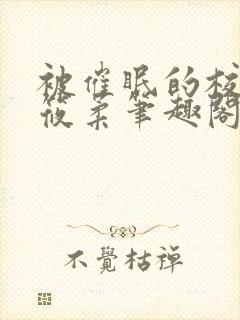 被催眠的校
筱柔笔趣阁
不覺枯禅